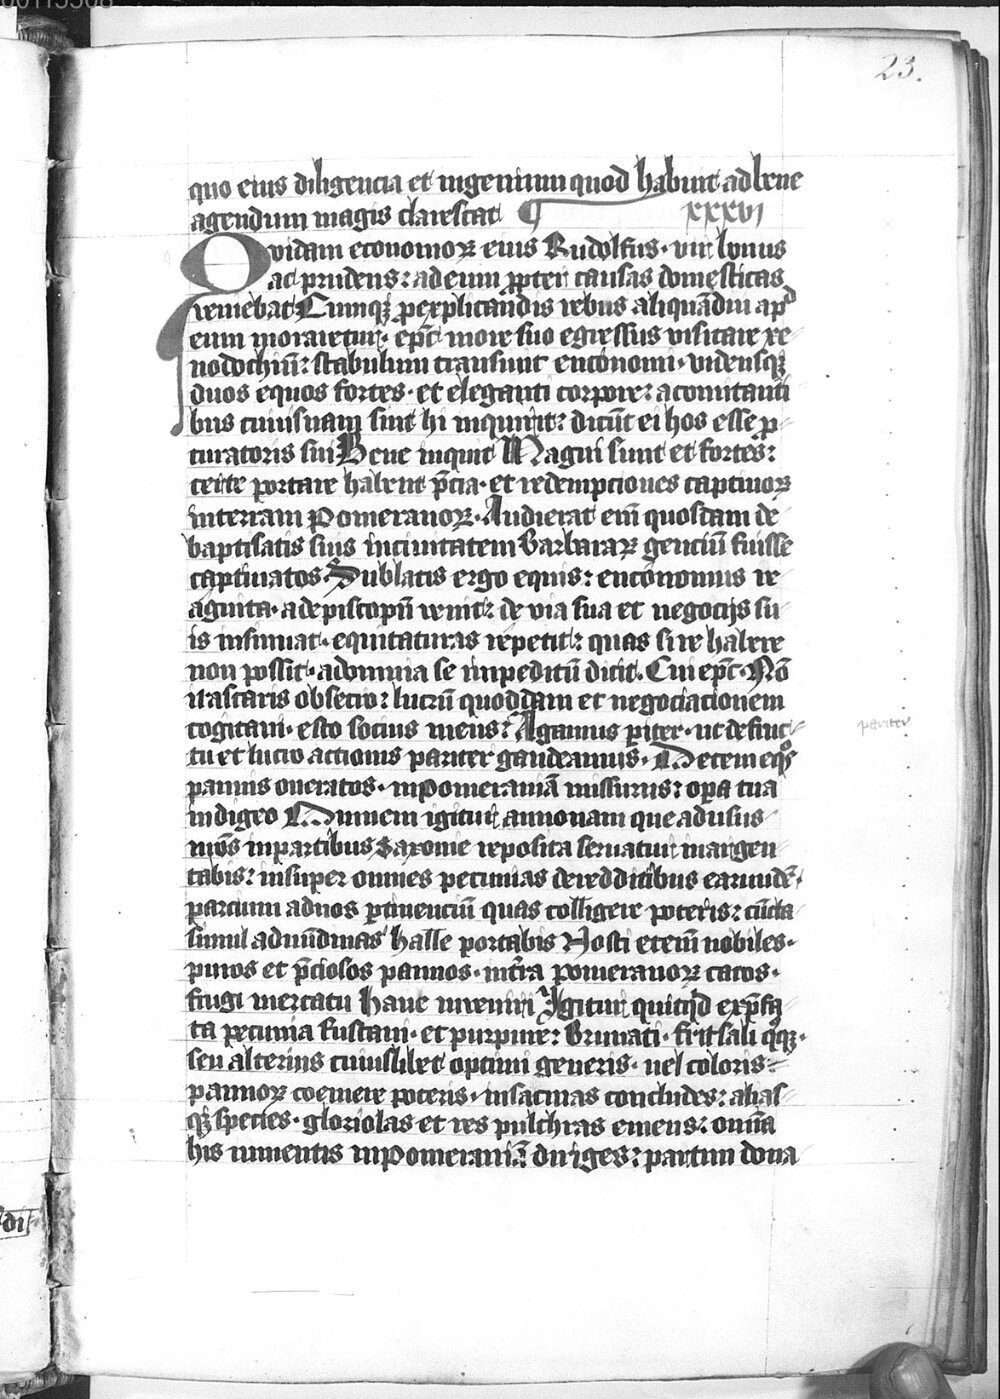 23.
quo eius diligencia et ingenium quod habuit ad bene
agendum magis clarescat ¶ xxxvi
Quidam economoꝝ eius Rudolfus · vir bonus
ac prudens: ad eum ꝓpter causas domesticas
veniebat Cumqꝫ ꝓ explicandis rebus aliquādiu apd
eum moraretur · epc̄ more suo egressus visitare xe
nodochiū: stabulum transiuit enconomi · vidensqꝫ
duos equos fortes · et eleganti corpore: a comitanti
bus cuiusnam sint hi inquirit: dicūt ei hos esse ꝓ
curatoris sui Bene inquit Magni sunt et fortes:
certe portare habent p̄cia · et redempciones captiuoꝝ
in terram Pomeranoꝝ · Audierat em̄ quosdam de
baptisatis suis in ciuitatem barbaraꝝ genciū fuisse
captiuatos · Sublatis ergo equis: enconomus re
agnita · ad episcopū venit: de via sua et negocijs su
is insinuat · equitaturas repetit: quas si re habere
non possit · ad omnia se impeditū dicit · Cui epc̄ · Nō
irascaris obsecro: lucrū quoddam et negociacionem
cogitaui · esto socius meus: Agamus pīter · ut de fruc
tu et lucro actionis pariter gaudeamus · Decem eqos
pannis oneratos · in Pomeraniā missurus: oꝑa tua
indigeo Omnem igitur annonam que ad usus
nr̄os in partibus Saxonie reposita seruatur in argen
tabis: insuper omnes pecunias de redditibus earundē ·
parcium ad nos ꝑtinenciū quas colligere poteris: cūcta
simul ad nūdinas halle portabis Nosti etenim nobiles ·
puros et p̄ciosos pannos · intra pomeranoꝝ caros ·
frugi mercatu haue inueniri Igitur quicqd exp̄sa
ta pecunia fustani · et purpure: Brunati · fritsali qoqꝫ ·
seu alterius cuiuslibet optimi generis · uel coloris:
pannoꝝ coemere poteris · in sarcinas concludes: alias
qꝫ species · gloriolas et res pulchras emens: omīa
his iumentis in Pomeraniā diriges: partim dona
pariter